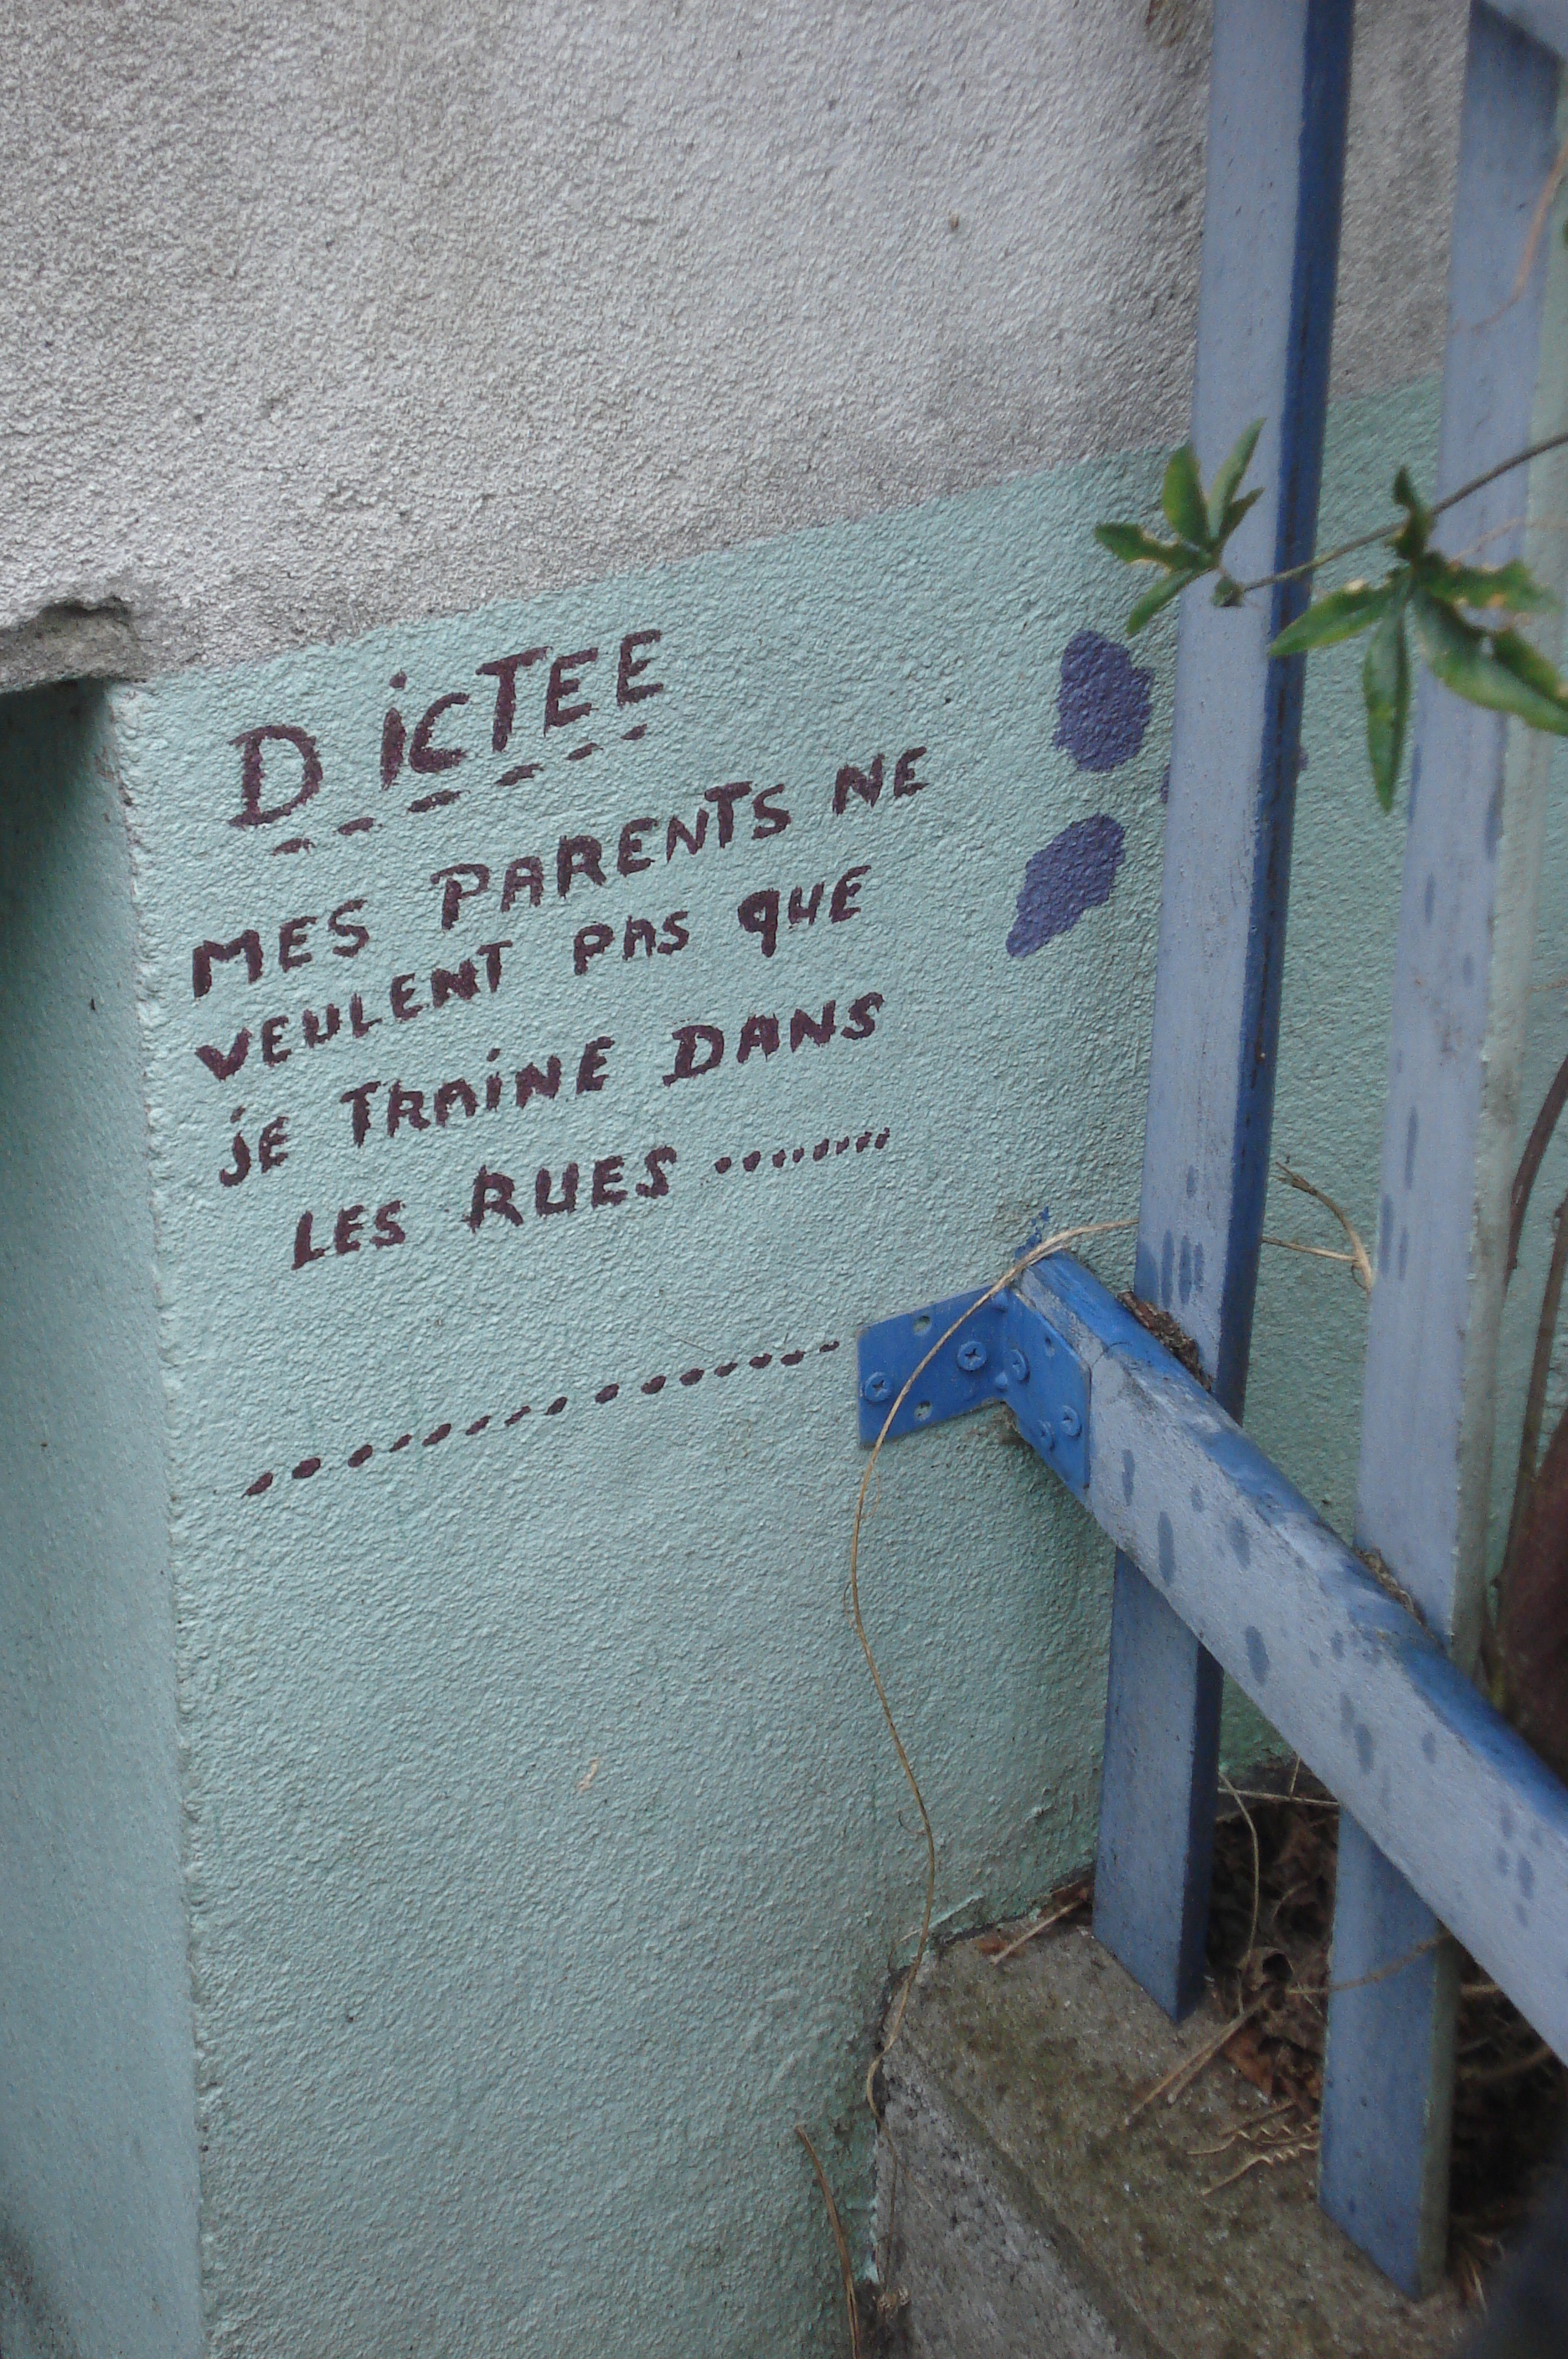 DiCTEE
MES PARENTS NE
VEULENT PAS QUE
jE TRAiNE DANS
LES RUES .........